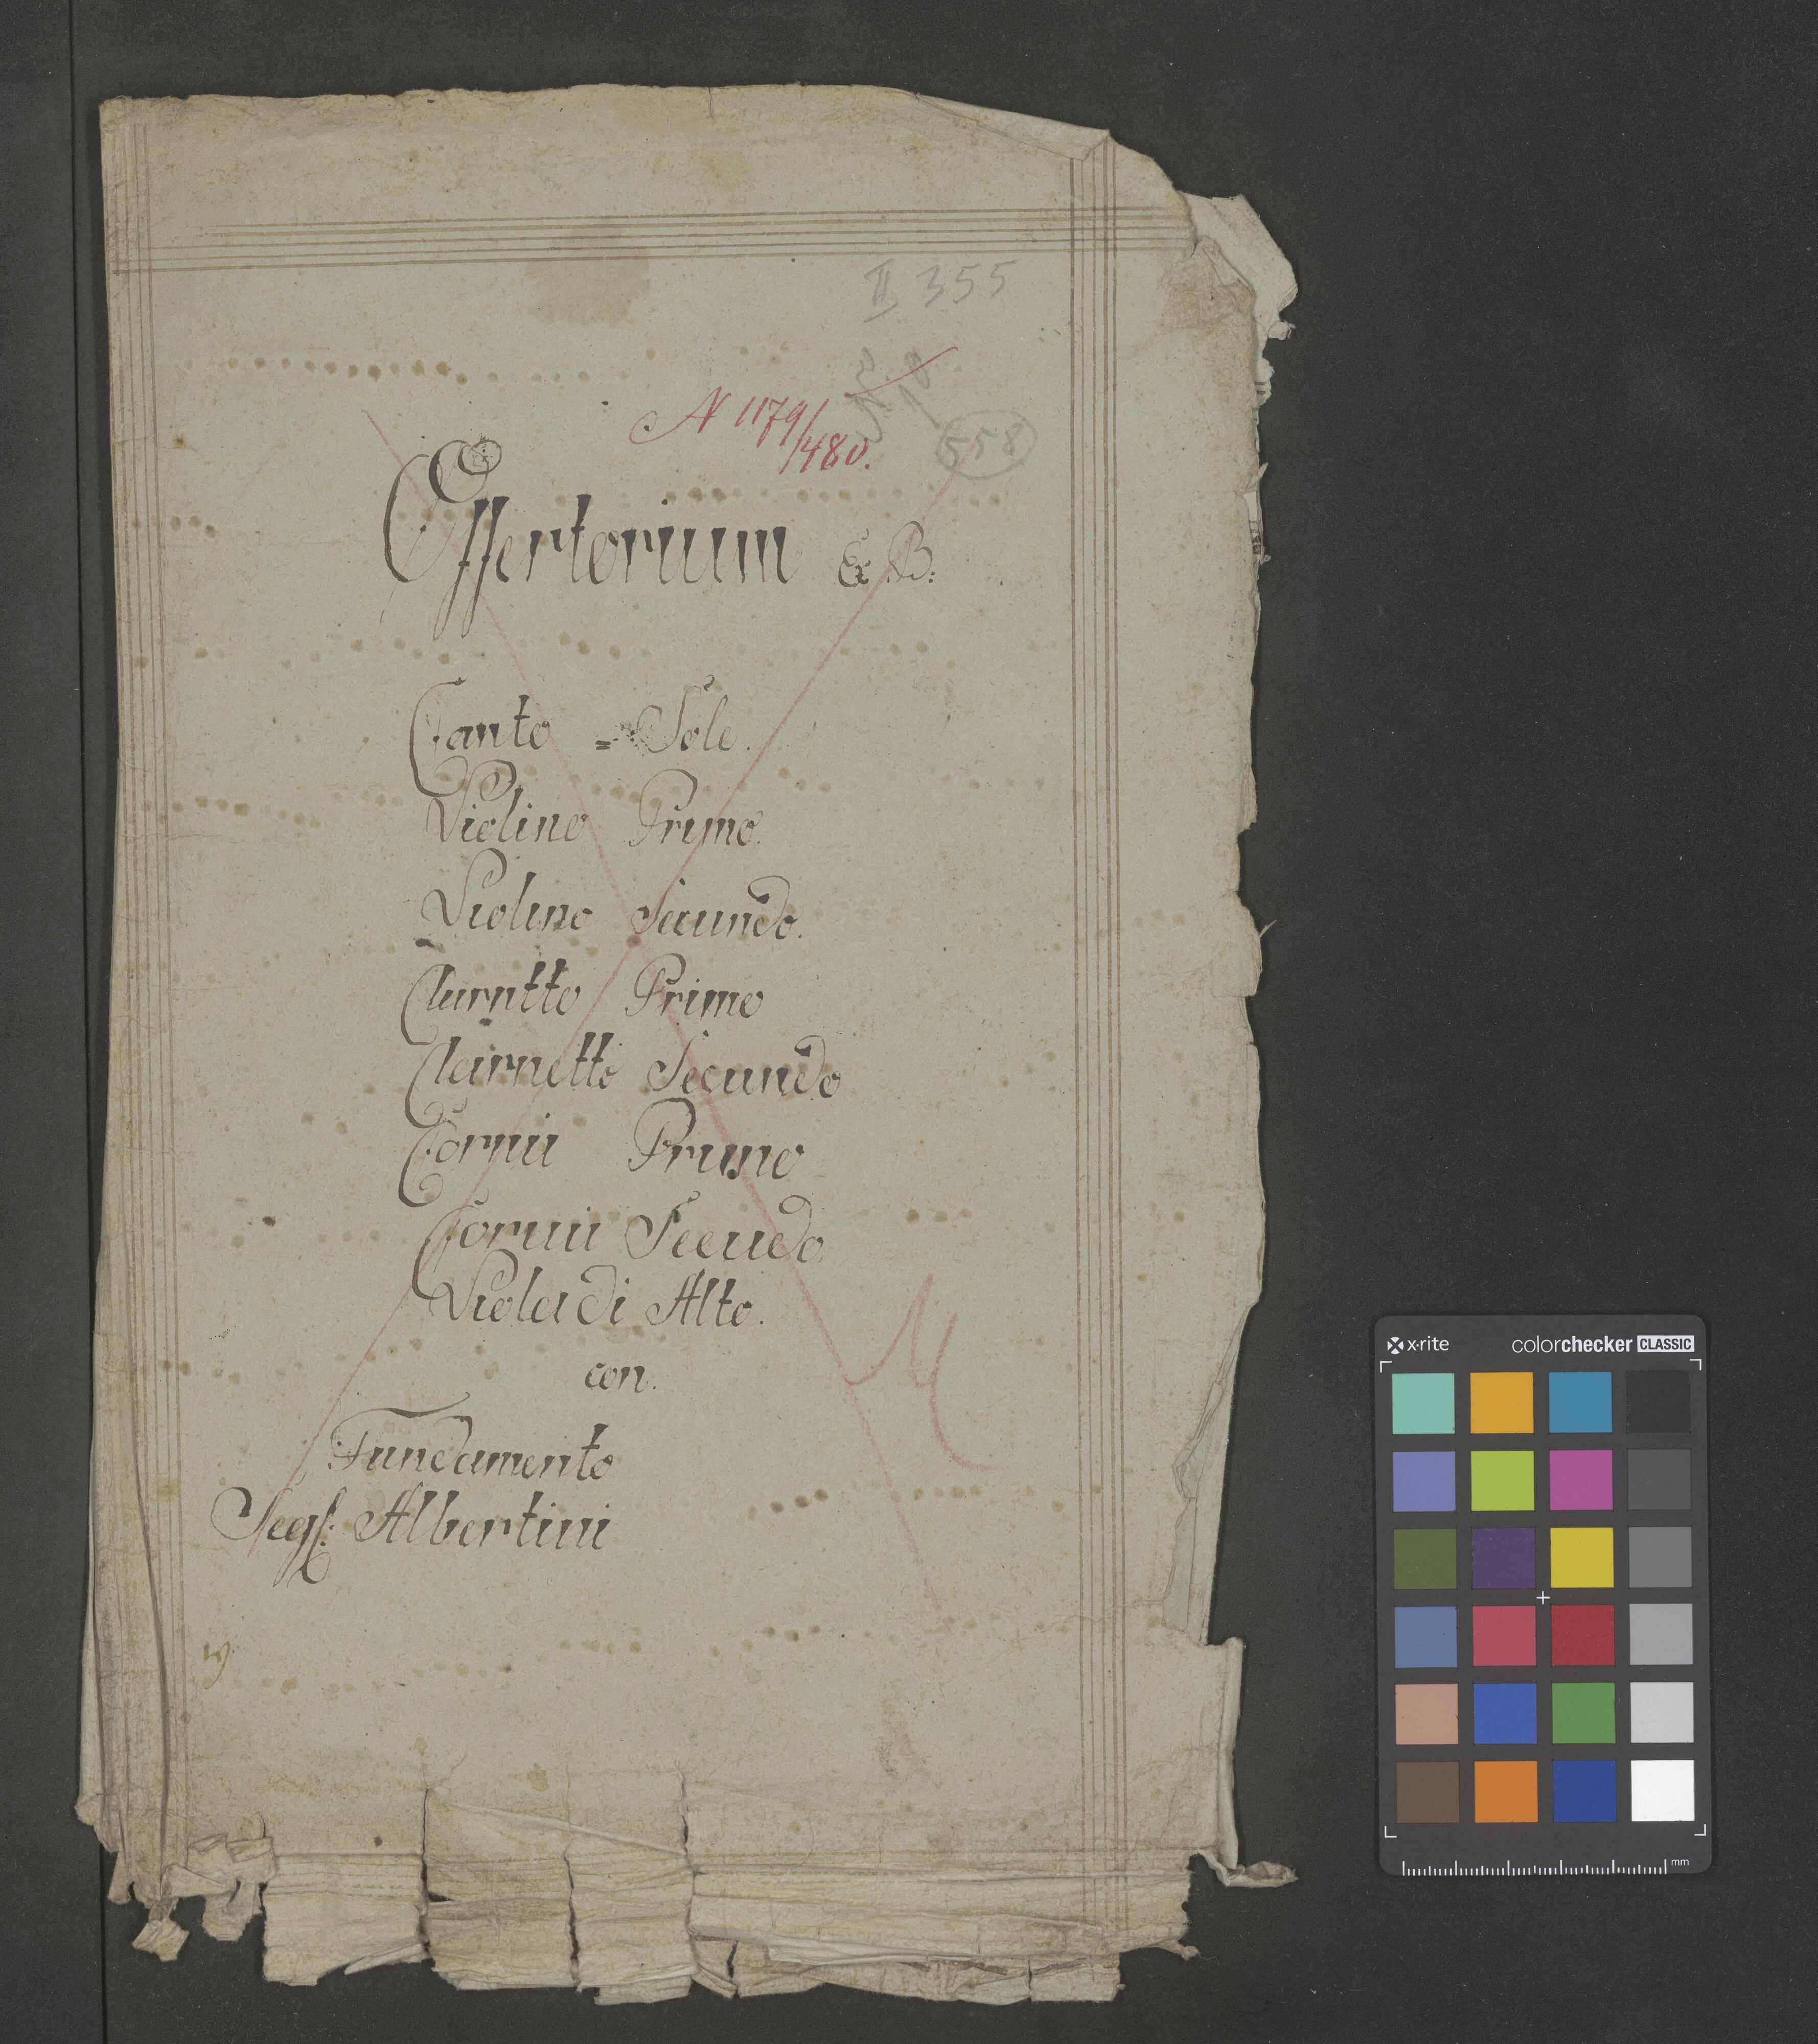 II 355
N 1179/480.
No
90
558
Offertorium Ex B:
Canto = Solo.
Violino Primo.
Violino Secundo.
Clarntto Primo
Clarnetto Secundo
Cornui Primo
Cornui Secudo
Viola di Alto.
con.
Fundamento
Albertini
M
x·rite colorchecker CLASSIC
mm